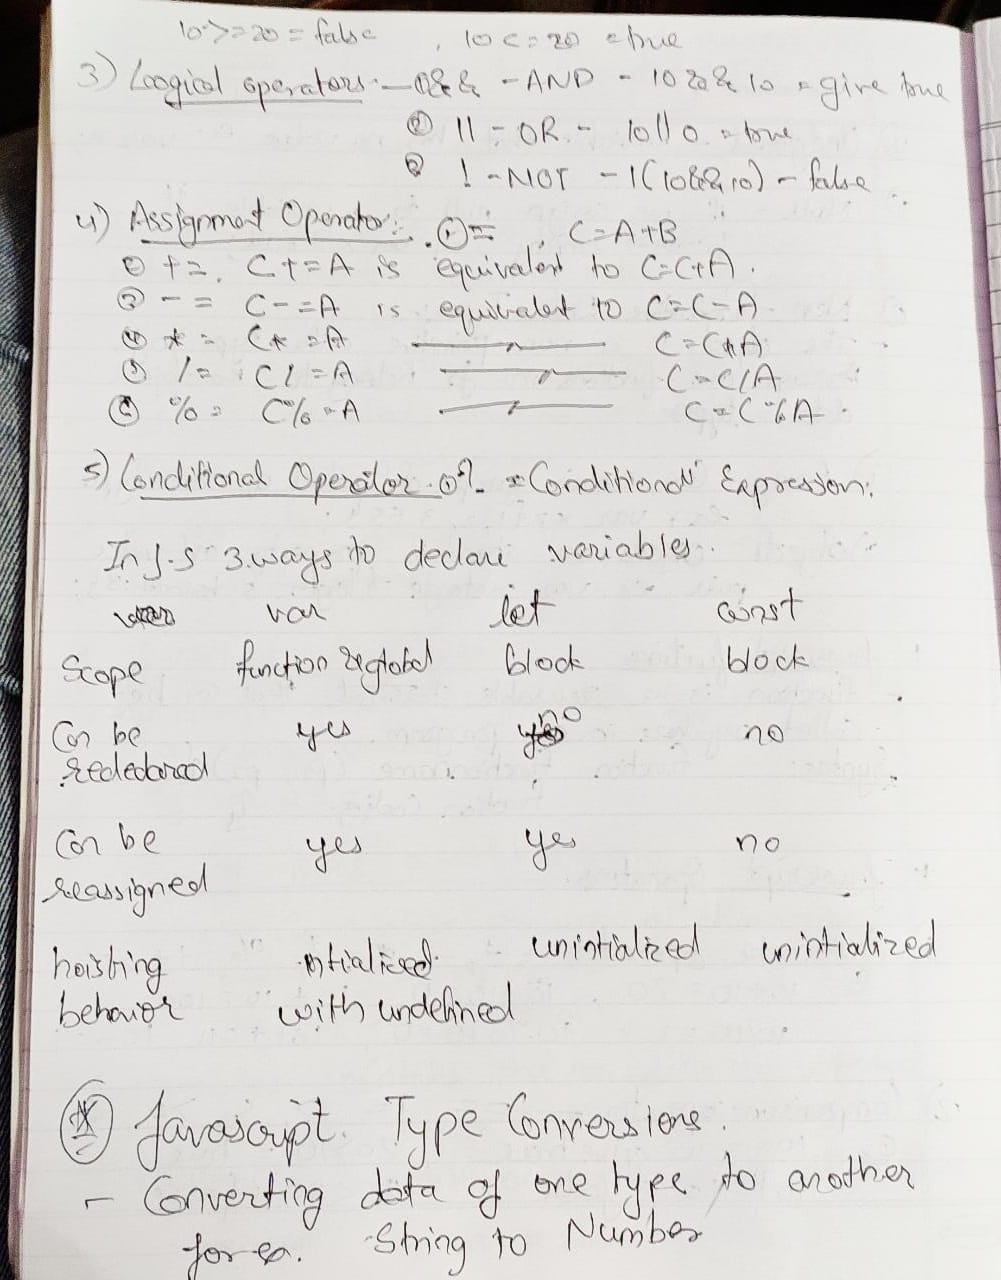 10>=20 = false , 10<=20 = true
3) Loogical operators - ① && - AND - 10 && 10 = give true
② || - OR - 10||0 = true
③ ! - NOT - !(10&&10) - false
4) Assignment Operator: ① = , C=A+B
② += , C+=A is equivalent to C=C+A.
③ -= C-=A is equivalent to C=C-A
④ *= C*=A —〃— C=C*A
⑤ /= C/=A —〃— C=C/A
⑥ %= C%=A —〃— C=C%A.
5) Conditional Operator. ① ? = Conditional Expression:
In J.S 3 ways to declare variables.
var let const
Scope function & global block block
Can be redeclared yes no no
Can be reassigned yes yes no
hoisting behavior intialized with undefined unintialized unintialized
* Javascript Type Conversions.
- Converting data of one type to another
for eg. String to Number